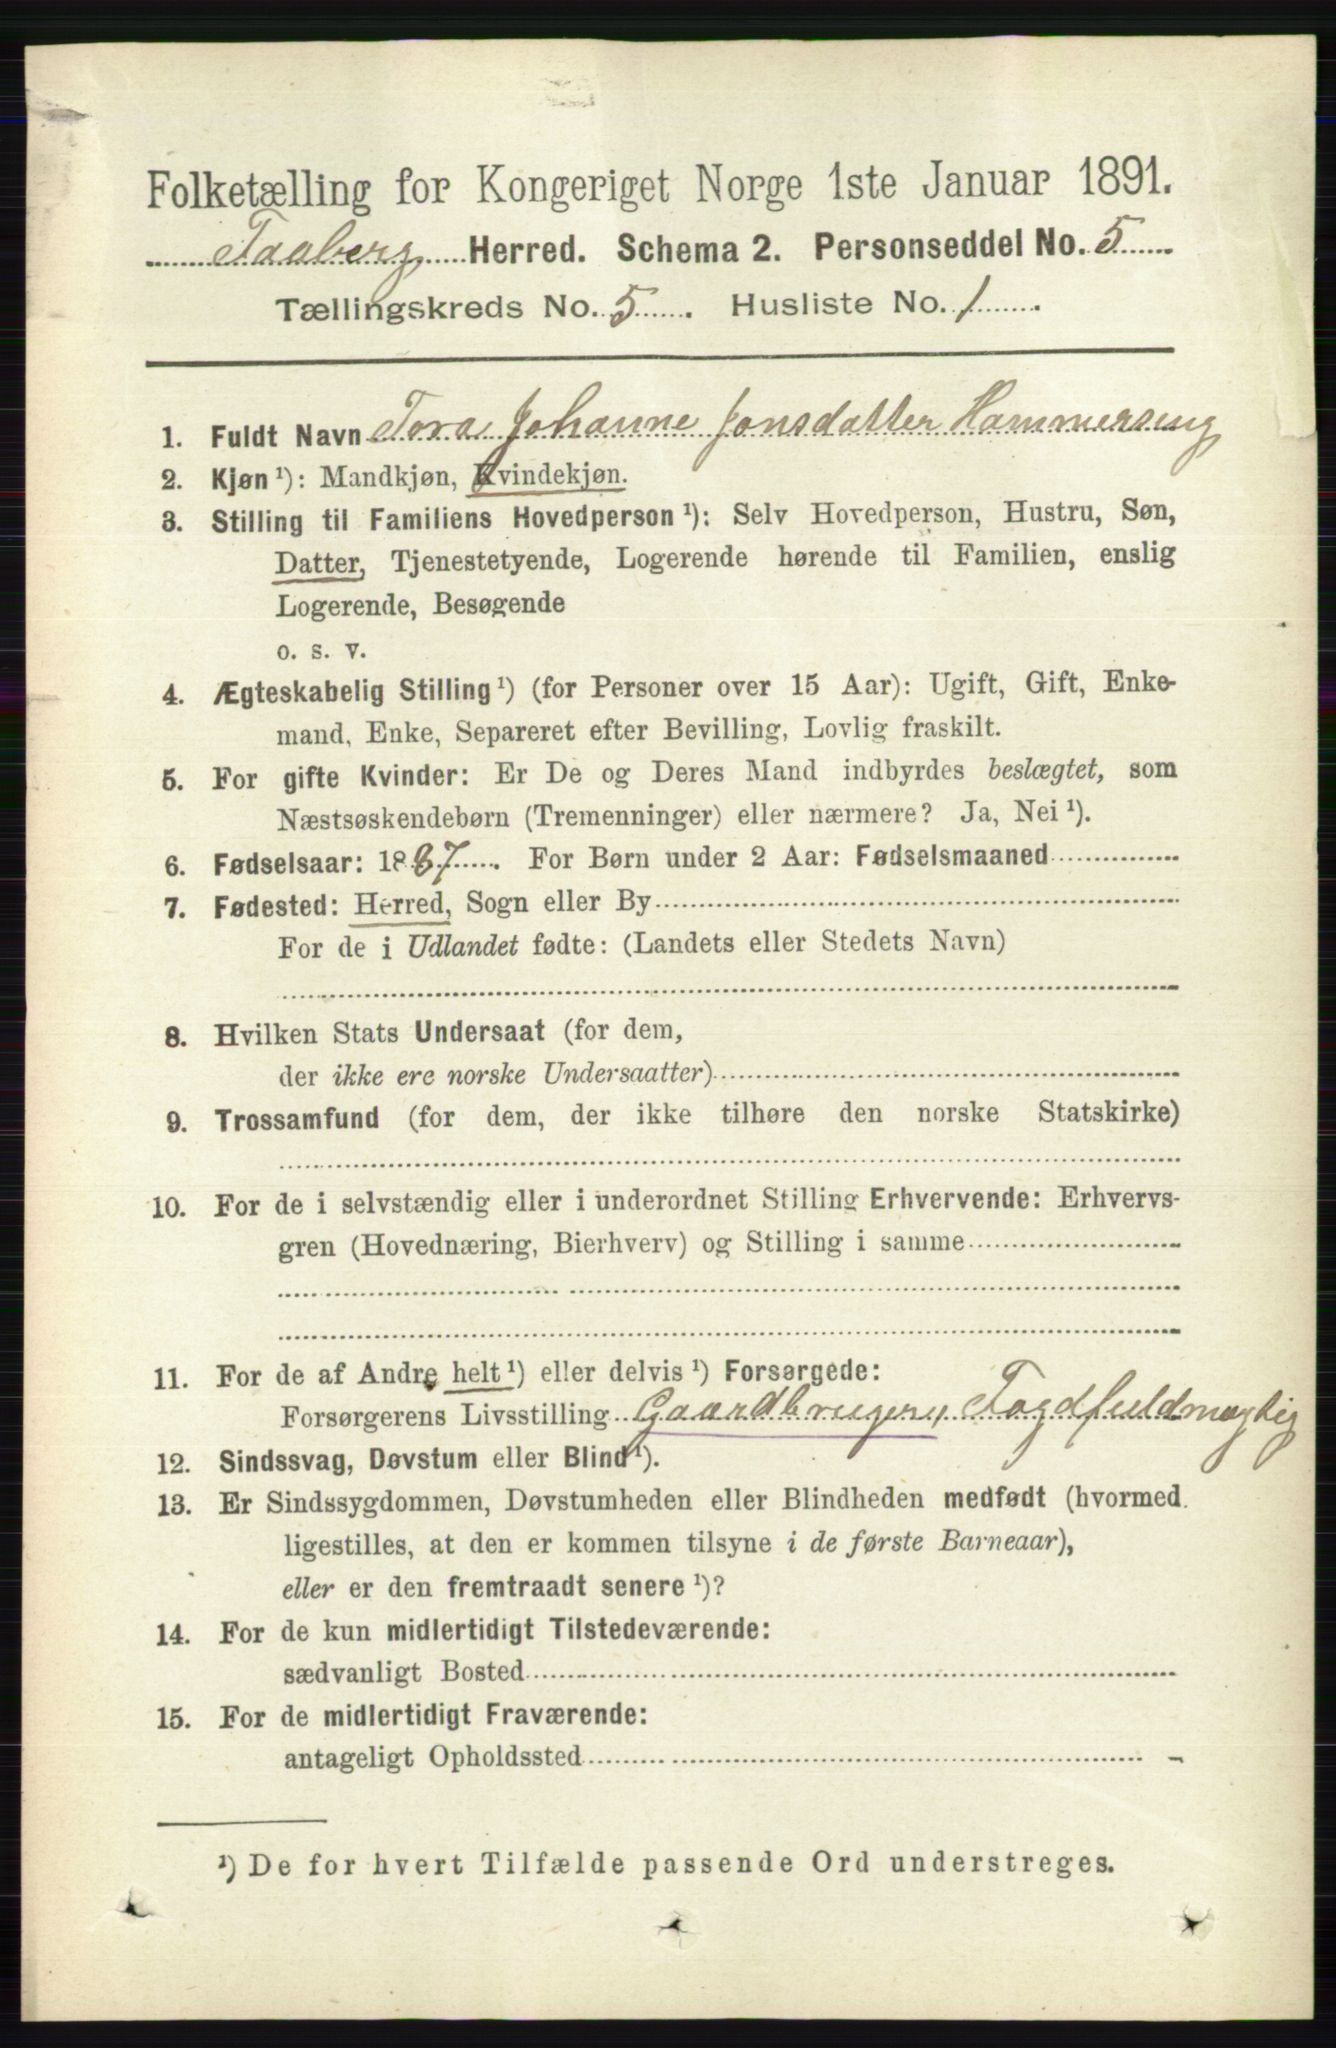 Folketælling for Kongeriget Norge 1ste Januar 1891.
Faaberg Herred. Schema 2. Personseddel No. 5
Tællingskreds No. 5. Husliste No. 1.
1. Fuldt Navn Tora Johanne Jonsdatter Hammerseng
2. Kjøn ¹): Mandkjøn, Kvindekjøn.
3. Stilling til Familiens Hovedperson ¹): Selv Hovedperson, Hustru, Søn,
Datter, Tjenestetyende, Logerende hørende til Familien, enslig
Logerende, Besøgende
o. s. v.
4. Ægteskabelig Stilling ¹) (for Personer over 15 Aar): Ugift, Gift, Enke-
mand, Enke, Separeret efter Bevilling, Lovlig fraskilt.
5. For gifte Kvinder: Er De og Deres Mand indbyrdes beslægtet, som
Næstsøskendebørn (Tremenninger) eller nærmere? Ja, Nei ¹).
6. Fødselsaar: 1887. For Børn under 2 Aar: Fødselsmaaned
7. Fødested: Herred, Sogn eller By
For de i Udlandet fødte: (Landets eller Stedets Navn)
8. Hvilken Stats Undersaat (for dem,
der ikke ere norske Undersaatter)
9. Trossamfund (for dem, der ikke tilhøre den norske Statskirke)
10. For de i selvstændig eller i underordnet Stilling Erhvervende: Erhvervs-
gren (Hovednæring, Bierhverv) og Stilling i samme
11. For de af Andre helt ¹) eller delvis ¹) Forsørgede:
Forsørgerens Livsstilling Gaardbruger, Fogdfuldmægtig
12. Sindssvag, Døvstum eller Blind ¹).
13. Er Sindssygdommen, Døvstumheden eller Blindheden medfødt (hvormed
ligestilles, at den er kommen tilsyne i de første Barneaar),
eller er den fremtraadt senere ¹)?
14. For de kun midlertidigt Tilstedeværende:
sædvanligt Bosted
15. For de midlertidigt Fraværende:
antageligt Opholdssted
¹) De for hvert Tilfælde passende Ord understreges.